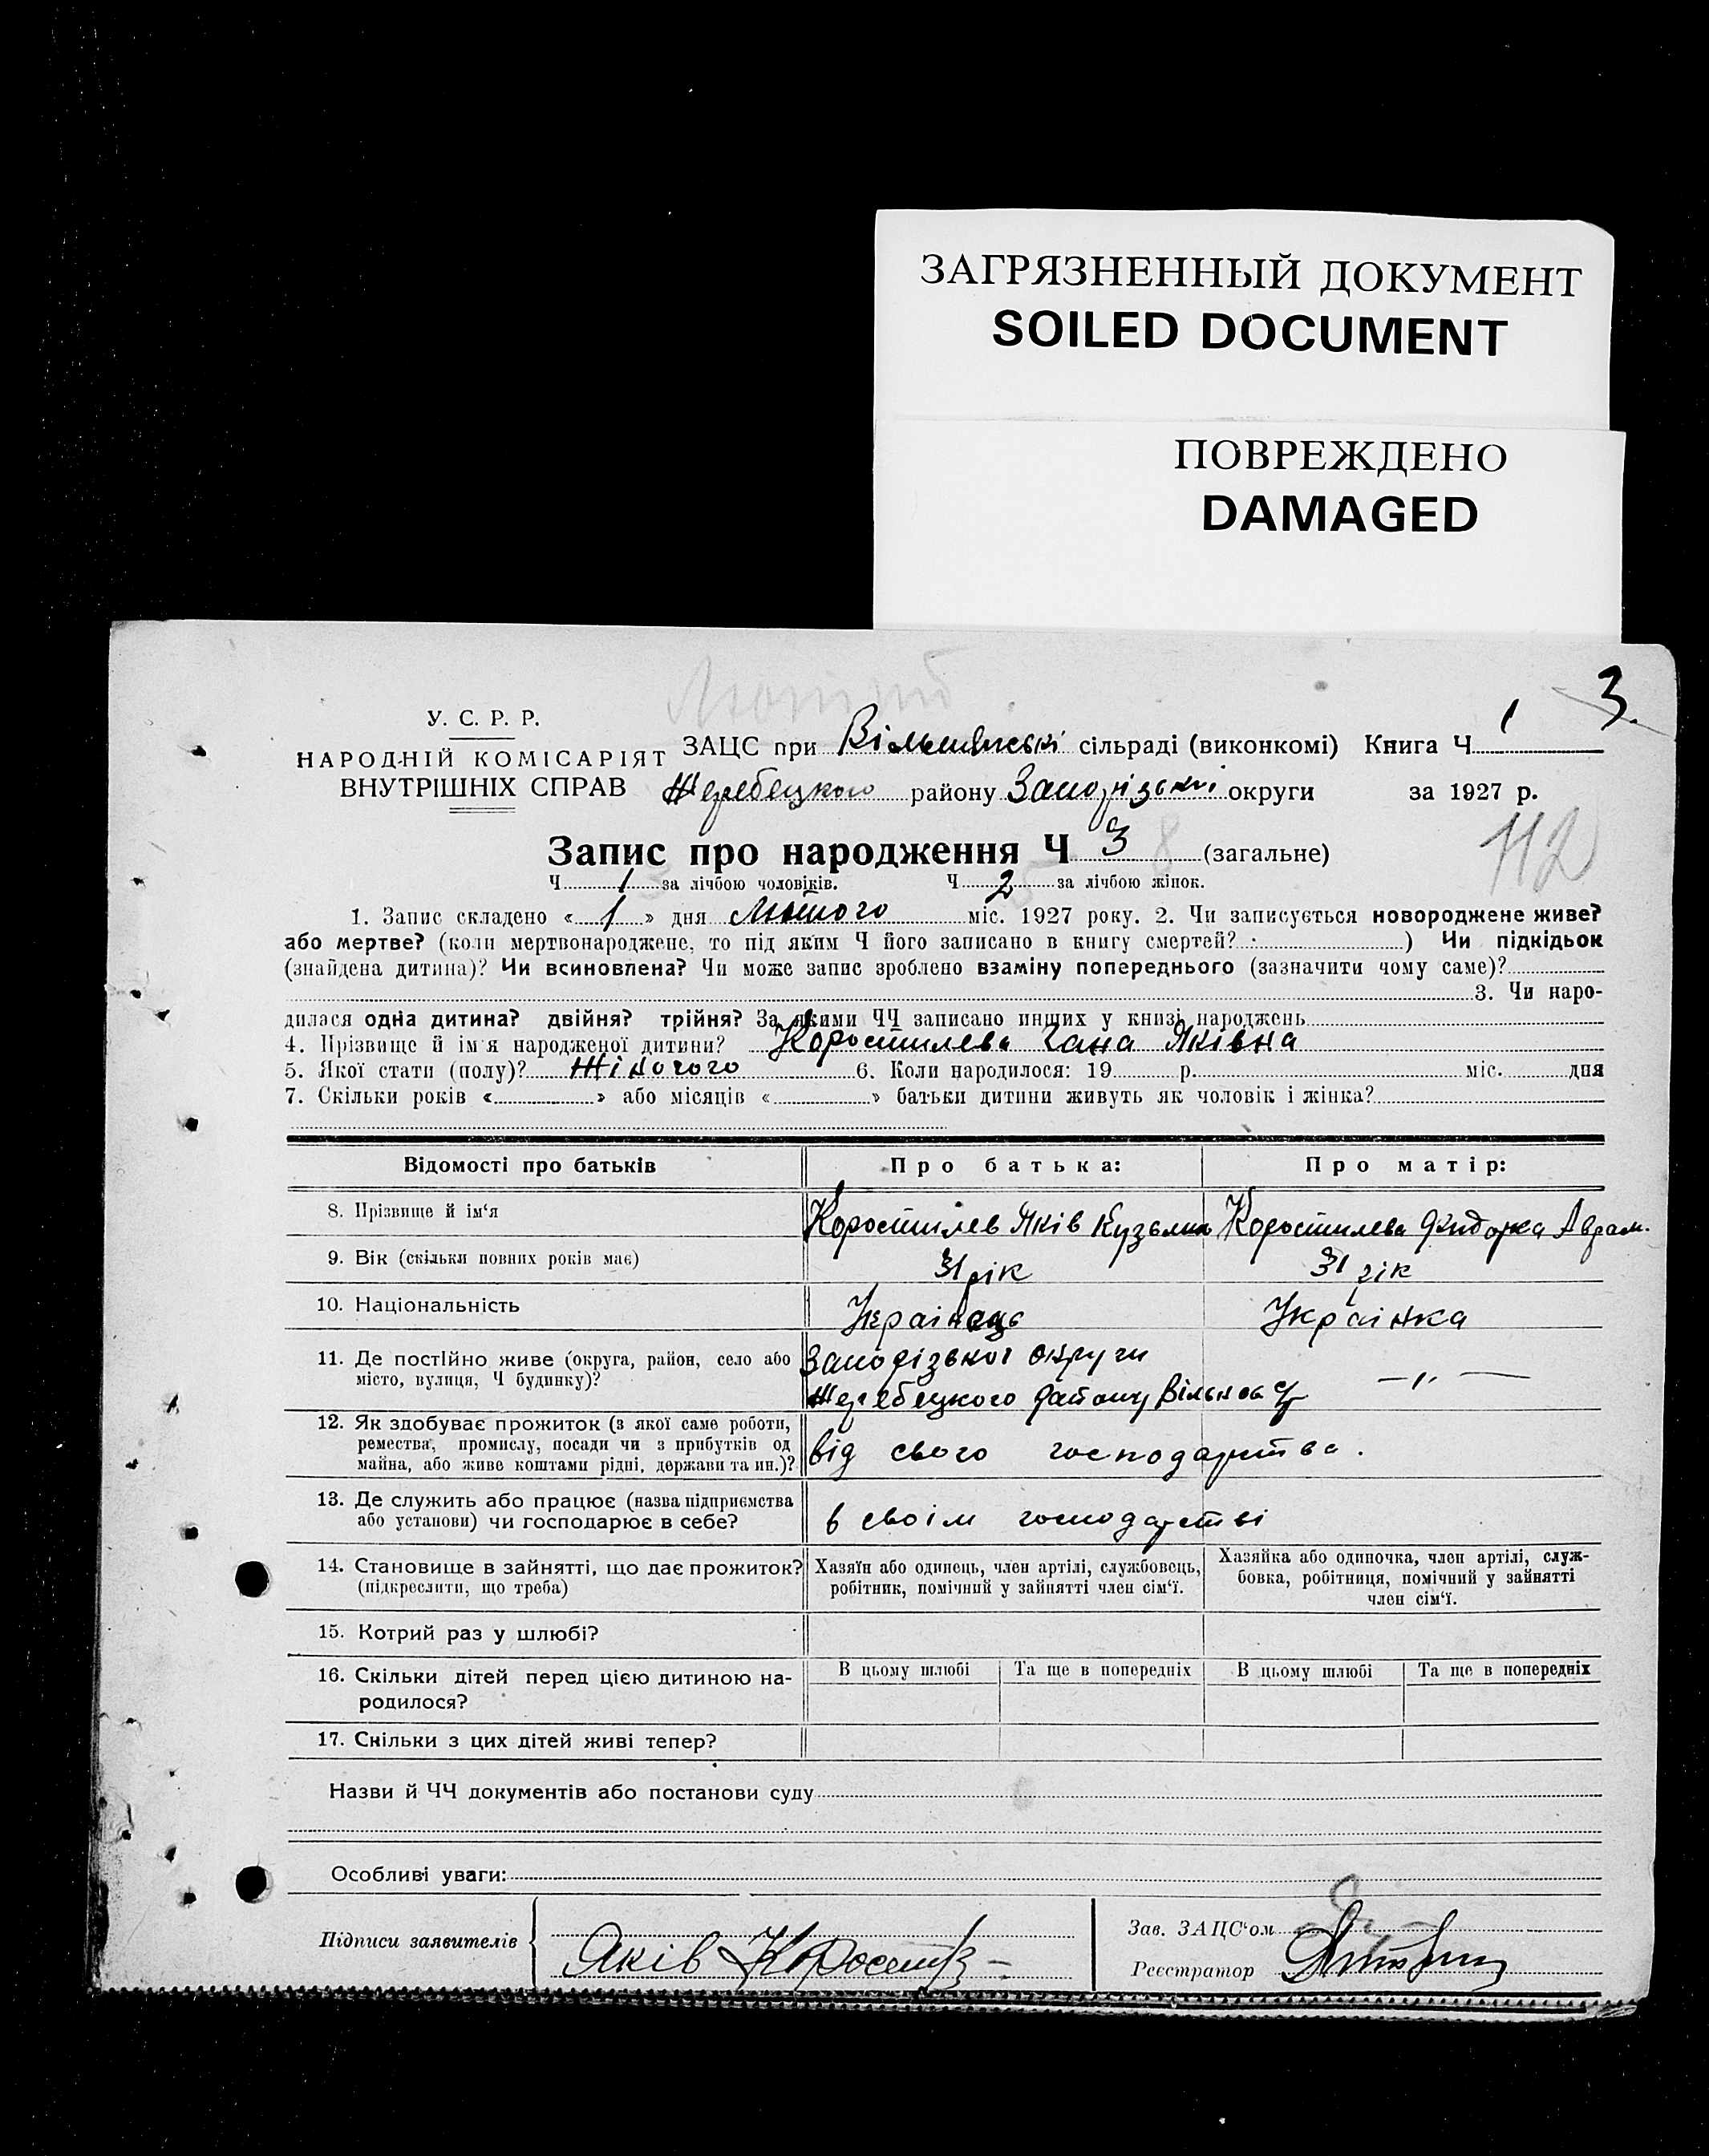 ЗАГРЯЗНЕННЫЙ ДОКУМЕНТ
SOILED DOCUMENT
ПОВРЕЖДЕНО
DAMAGED
3.
У. С. Р. Р.
НАРОДНІЙ КОМІСАРІЯТ
ВНУТРІШНІХ СПРАВ
ЗАЦС при сільраді (виконкомі) Книга Ч 1
Жеребецкого району округи за 1927 р.
Запис про народження Ч 3 (загальне)
112
Ч 1 за лічбою чоловіків. Ч 2 за лічбою жінок.
1. Запис складено « 1 » дня Лютого міс. 1927 року. 2. Чи записується новороджене живе?
або мертве? (коли мертвонароджене, то під яким Ч його записано в книгу смертей? ) Чи підкідьок
(знайдена дитина)? Чи всиновлена? Чи може запис зроблено взаміну попереднього (зазначити чому саме)?
3. Чи наро-
дилася одна дитина? двійня? трійня? За якими ЧЧ записано инших у книзі народжень
4. Прізвище й ім'я народженої дитини? Коростилева Яківна
5. Якої стати (полу)? Жіночого 6. Коли народилося: 19 р. міс. дня
7. Скільки років « » або місяців « » батьки дитини живуть як чоловік і жінка?
Відомості про батьків Про батька: Про матір:
8. Прізвище й ім‘я Коростилев Яків Кузьмич Коростилева Аврам.
9. Вік (скільки повних років має) 31 рік 31 рік
10. Національність Українець Українка
11. Де постійно живе (округа, район, село або
місто, вулиця, Ч будинку)?
округи
Жеребецкого району — „ —
12. Як здобуває прожиток (з якої саме роботи,
ремества, промислу, посади чи з прибутків од
майна, або живе коштами рідні, держави та ин.)?
від свого господарства.
13. Де служить або працює (назва підприємства
або установи) чи господарює в себе?
в своім господарстві
14. Становище в зайнятті, що дає прожиток?
(підкреслити, що треба)
Хазяїн або одинець, член артілі, службовець,
робітник, помічний у зайнятті член сім‘ї.
Хазяйка або одиночка, член артілі, служ-
бовка, робітниця, помічний у зайнятті
член сім‘ї.
15. Котрий раз у шлюбі?
16. Скільки дітей перед цією дитиною на-
родилося?
В цьому шлюбі Та ще в попередніх В цьому шлюбі Та ще в попередніх
17. Скільки з цих дітей живі тепер?
Назви й ЧЧ документів або постанови суду
Особливі уваги:
Підписи заявителів Яків
Зав. ЗАЦС‘ом
Реєстратор